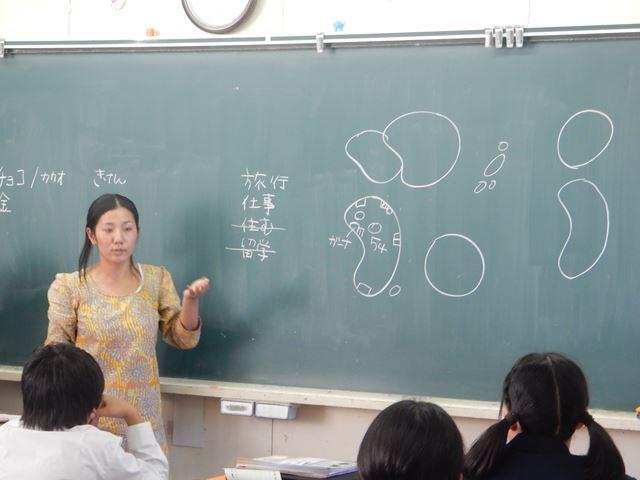 チョコ/カカオ
金
きけん
旅行
仕事
住む
留学
ガーナ
54